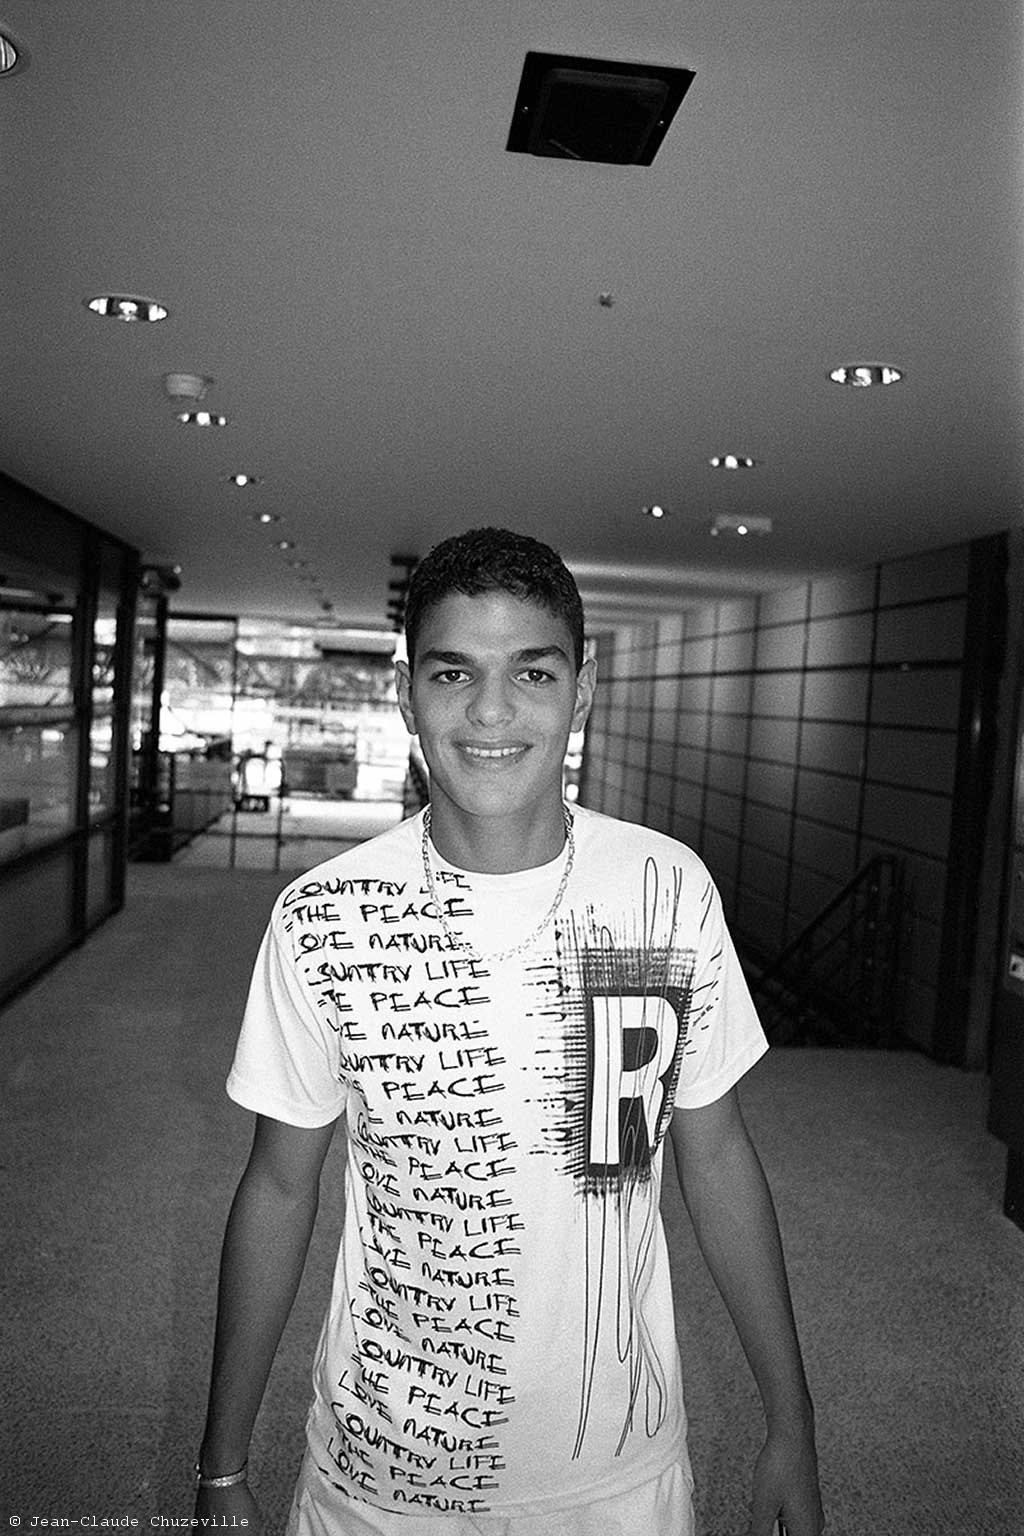 COUNTRY LIFE
THE PEACE
LOVE NATURE
COUNTRY LIFE
THE PEACE
LOVE NATURE
COUNTRY LIFE
THE PEACE
LOVE NATURE
COUNTRY LIFE
THE PEACE
LOVE NATURE
COUNTRY LIFE
THE PEACE
LOVE NATURE
COUNTRY LIFE
THE PEACE
LOVE NATURE
COUNTRY LIFE
THE PEACE
LOVE NATURE
COUNTRY LIFE
THE PEACE
LOVE NATURE
R
© Jean-Claude Chuzeville